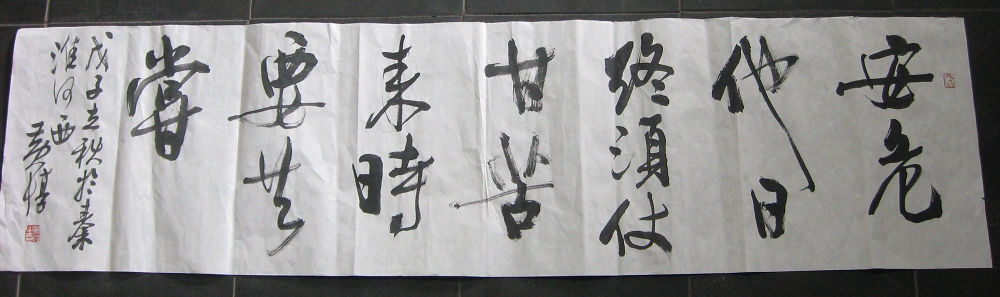 安危
他日
終須仗
甘苦
来時
要共
嘗
戊子立秋於秦
淮河西
黃惇